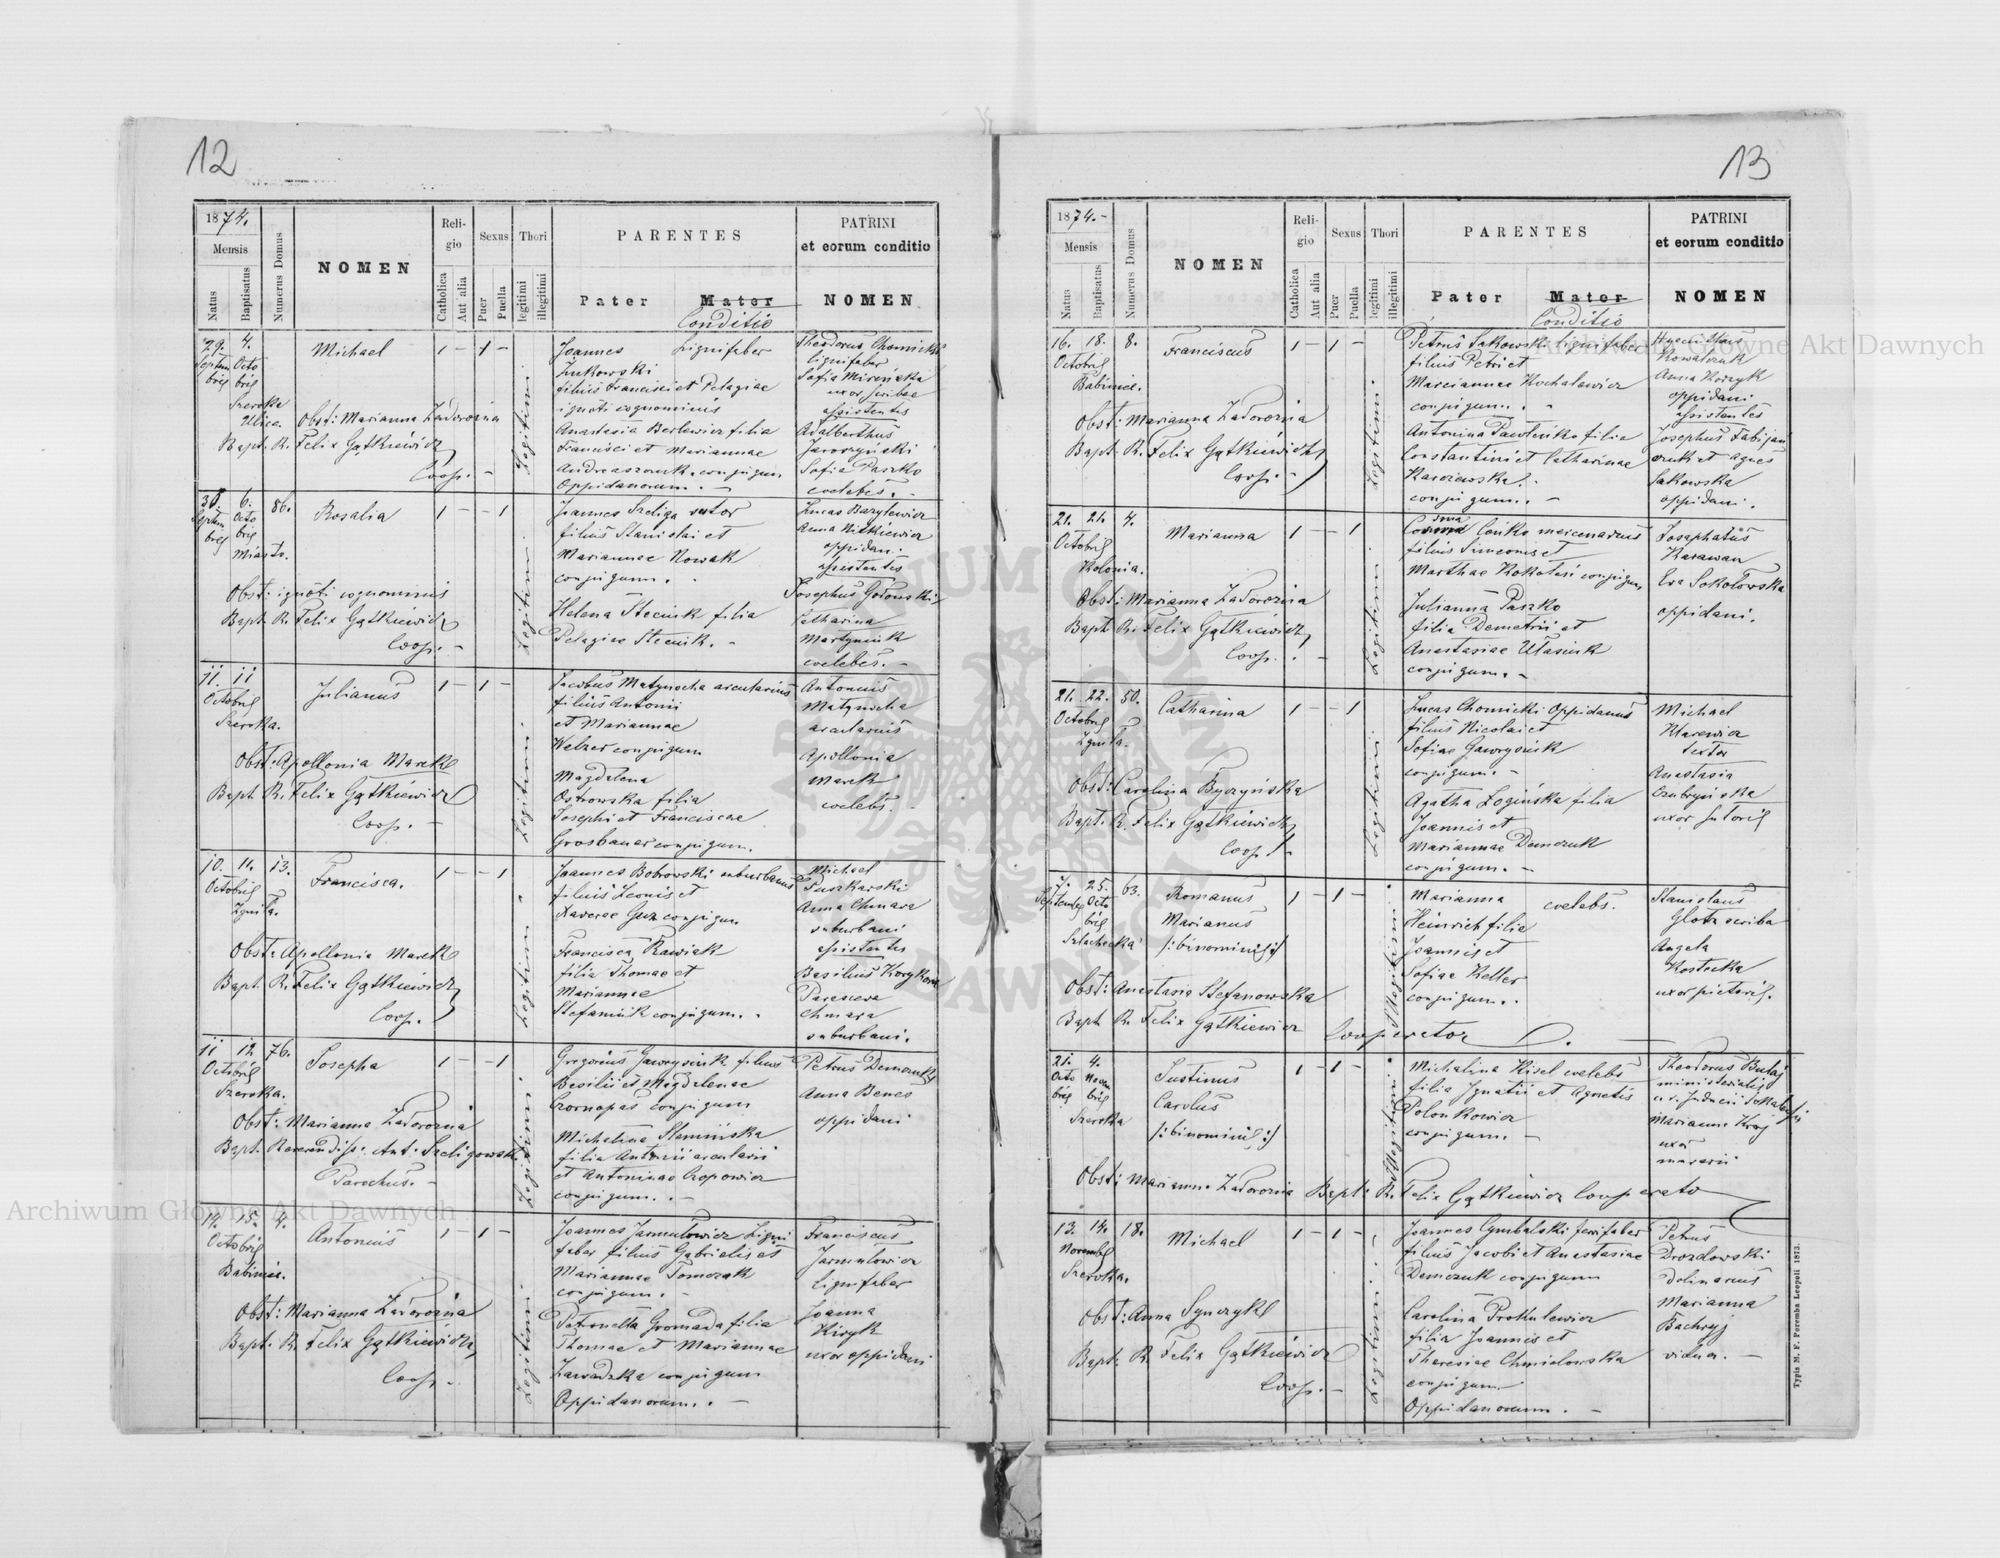 12
1874.
Mensis
Natus
Baptisatus
Numerus Domus
NOMEN
Reli-
gio
Catholica
Aut alia
Sexus
Puer
Puella
Thori
legitimi
illegitimi
PARENTES
Pater Mater
Conditio
PATRINI
et eorum conditio
NOMEN
29. 4.
Septem Octo
bris bris
Szeroka
Ulica.
Michael
1 - 1 -
Legitimi.
Obst: Marianna Zadorożna
Bapt. R. Felix Gątkiewicz
Coop. -
Joannes Lignifaber
Żukowski
filius Francisci et Pelagiae
ignoti cognominis
Anastasia Berlewicz filia
Francisci et Mariannae
Andreaszczuk. conjugum
Oppidanorum. -
Theodorus Chomicki
lignifaber
Sofia Mireńska
uxor scribae
assistentes
Adalberthus
Jaworzyński
Sofia Paszko
coelebs. -
30. 6. 86.
Septem Octo
bris bris
Miasto.
Rosalia
1 - - 1
Legitimi.
Obst: ignoti cognominis
Bapt. R. Felix Gątkiewicz
Coop. -
Joannes Szeliga sutor
filius Stanislai et
Mariannae Nowak
conjugum.
Helena Steciuk filia
Pelagiae Steciuk. -
Lucas Bazylewicz
Anna Nitkiewicz
oppidani
assistentes
Josephus Gołowski
Catharina
Martyniuk
coelebes. -
11. 11
Octobris
Szeroka.
Julianus
1 - 1 -
Legitimi.
Obst: Apollonia Marek
Bapt. R. Felix Gątkiewicz
Coop. -
Jacobus Matynocha arcularius
filius Antonii
et Mariannae
Welzer conjugum
Magdalena
Ostrowska filia
Josephi et Franciscae
Grosbauer conjugum.
Antonius
Matynocha
arcularius
Apollonia
Marek
coelebs. -
10. 11. 13.
Octobris
Zgniła.
Francisca.
1 - - 1
Legitimi.
Obst: Apollonia Marek
Bapt. R. Felix Gątkiewicz
Coop.
Joannes Bobrowski suburbanus
filius Leonis et
Xaverae Guz conjugum
Francisca Rawiak
filia Thomae et
Mariannae
Stefaniuk conjugum.
Michael
Puszkarski
Anna Chmara
suburbani
assistentes
Basilius Korykora
Parasceva
Chmara
suburbani.
11 12 76.
Octobris
Szeroka.
Josepha
1 - - 1
Legitimi.
Obst: Marianna Zadorożna
Bapt. Reverendiss. Ant: Szeligowski
Parochus. -
Gregorius Gawrysiuk filius
Basilii et Magdalenae
Czornopas conjugum
Michalina Słemińska
filia Antonii arcularii
et Antoninae Cropowicz
conjugum. -
Petrus Demczuk
Anna Benes
oppidani
14. 15. 4.
Octobris
Babinie.
Antonius
1 - 1 -
Legitimi.
Obst: Marianna Zadorożna
Bapt. R. Felix Gątkiewicz
Coop. -
Joannes Jarmułowicz Ligni
faber filius Gabrielis et
Mariannae Tomczak
conjugum. -
Petronella Gromada filia
Thomae et Mariannae
Zawadzka conjugum
Oppidanorum. -
Franciscus
Jarmułowicz
Lignifaber
Joanna
Kiryk
uxor oppidani
13
1874. -
Mensis
Natus
Baptisatus
Numerus Domus
NOMEN
Reli-
gio
Catholica
Aut alia
Sexus
Puer
Puella
Thori
legitimi
illegitimi
PARENTES
Pater Mater
Conditio
PATRINI
et eorum conditio
NOMEN
16. 18. 8.
Octobris
Babinie.
Franciscus
1 - 1 -
Legitimi.
Obst: Marianna Zadorożna
Bapt. R. Felix Gątkiewicz
Coop. -
Petrus Sakowski Lignifaber
filius Petri et
Marciannae Kochalewicz
conjugum. -
Antonina Pawleńko filia
Constantini et Catharinae
Karczewska
conjugum. -
Kowalczuk
Anna Korzyk
oppidani
assistentes
Josephus Fabijań
czuk et Agnes
Sakowska
oppidani.
21. 21. 4.
Octobris
Kolonia.
Marianna
1 - - 1
Legitimi.
Obst: Marianna Zadorożna
Bapt. R. Felix Gątkiewicz
Coop. -
Cońko mercenarius
filius Simeonis et
Marthae Kokotaś conjugum
Julianna Paszko
filia Demetrii et
Anastasiae Ułasiuk
conjugum. -
Josaphatus
Karawan
Eva Sokołowska
oppidani.
21. 22. 50.
Octobris
Zgniła.
Catharina
1 - - 1
Legitimi.
Obst: Carolina Byczyńska
Bapt. R. Felix Gątkiewicz
Coop. -
Lucas Chomicki Oppidanus
filius Nicolai et
Sofiae Gawrysiuk
conjugum. -
Agatha Łogińska filia
Joannis et
Mariannae Demczuk
conjugum. -
Michael
Klarewicz
textor
Anastasia
Czubryńska
uxor sutoris
7. 25. 63.
Septembris Octo
bris
Szlachecka
Romanus
Marianus
/:binominis:/
1 - 1 -
Illegitimi.
Obst: Anastasia Stefanowska
Bapt. R. Felix Gątkiewicz Cooperator
Marianna coelebs.
Heinrich filia
Joannis et
Sofiae Keller
conjugum.
Stanislaus
Glotz scriba
Angela
Kostecka
uxor pictoris.
21. 4.
Octo Novem
bris bris
Szeroka
Justinus
Carolus
/:binominis:/
1 - 1 -
Illegitimi.
Obst: Marianna Zadorożna Bapt: R. Felix Gątkiewicz Cooperator
Michalina Kisel coelebs
filia Ignatii et Agnetis
Polonkowicz
conjugum. -
Theodorus Bulaj
ministerialis
Marianna Kroj
uxor
murarii
13. 14. 18.
Novembris
Szeroka.
Michael
1 - 1 -
Legitimi.
Obst: Anna Synczyk
Bapt. R. Felix Gątkiewicz
Coop. -
Joannes Cymbalski ferrifaber
filius Jacobi et Anastasiae
Demczuk conjugum
Carolina Prokulewicz
filia Joannis et
Theresiae Chmielowska
conjugum
Oppidanorum. -
Petrus
Drozdowski
doliarius
Marianna
Bachryj
vidua. -
Typis M. F. Poremba Leopoli 1873.
Archiwum Główne Akt Dawnych
Archiwum Główne Akt Dawnych
ARCHIWUM GŁÓWNE AKT DAWNYCH